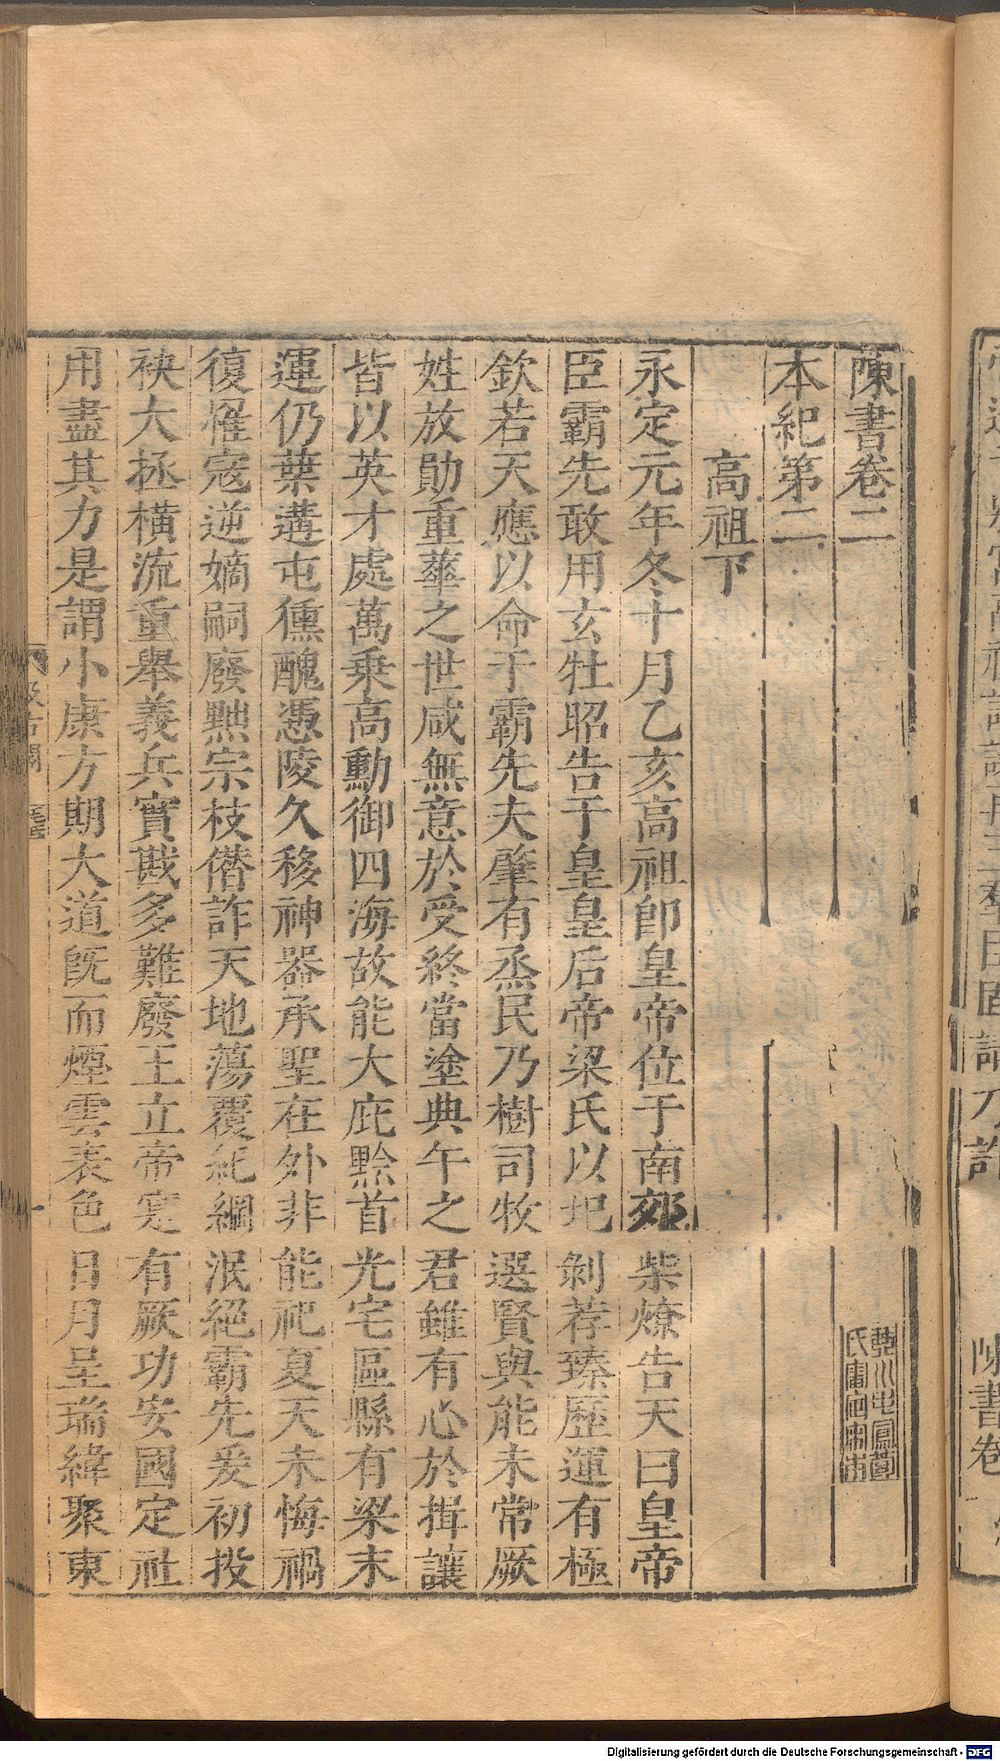 陳書卷二
本紀第二
高祖下
永定元年冬十月乙亥高祖卽皇帝位于南郊柴燎告天曰皇帝
臣霸先敢用玄牡昭告于皇皇后帝梁氏以圮剝荐臻歷運有極
欽若天應以命于霸先夫肇有烝民乃樹司牧選賢與能未常厥
姓放勛重華之世咸無意於受終當塗典午之君雖有心於揖讓
皆以英才處萬乗高勳御四海故能大庇黔首光宅區縣有梁末
運仍葉遘屯獯醜憑陵久移神器承聖在外非能祀夏天未悔禍
復罹寇逆嫡嗣廢黜宗枝僭詐天地蕩覆紀綱泯絕霸先爰初投
袂大拯橫流重舉義兵實戡多難廢王立帝寔有厥功安國定社
用盡其力是謂小康方期大道旣而煙雲表色日月呈瑞緯聚東
陳書卷
Digitalisierung gefördert durch die Deutsche Forschungsgemeinschaft - DFG